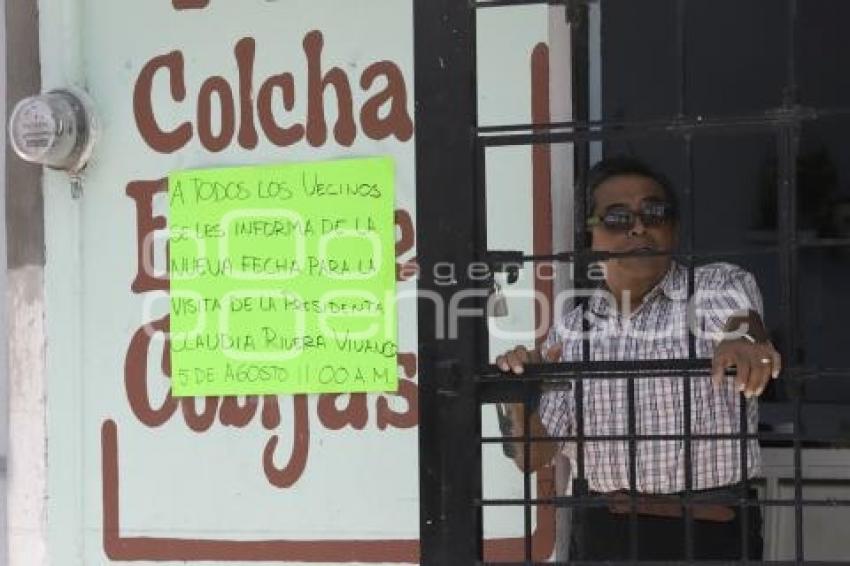 Colcha
A TODOS LOS VECINOS
SE LES INFORMA DE LA
NUEVA FECHA PARA LA
VISITA DE LA PRESIDENTA
CLAUDIA RIVERA VIVANCO
5 DE AGOSTO 11:00 A.M.
Cobijas
agencia
enfoque